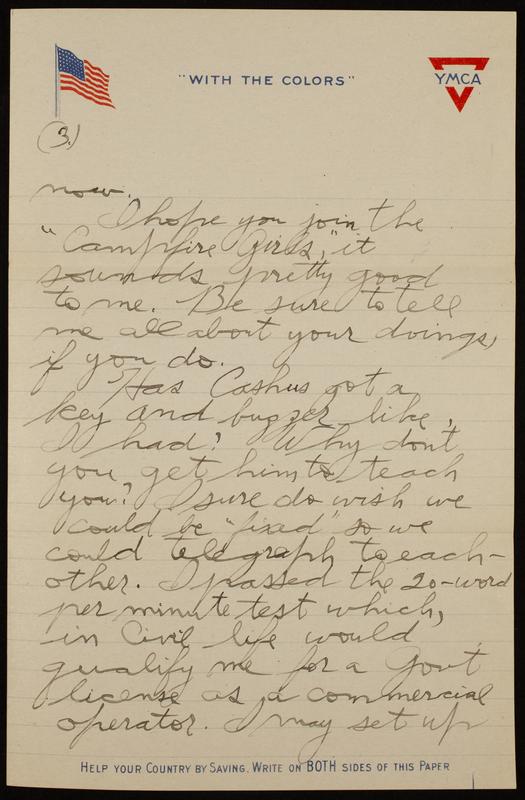 "WITH THE COLORS"
YMCA
(3.)
now.
I hope you join the
"Campfire Girls," it
sounds pretty good
to me. Be sure to tell
me all about your doings,
if you do.
Has Cashus got a
key and buzzer like
I had? Why don't
you get him to teach
you? I sure do wish we
could be "fixed" so we
could telegraph to each-
other. I passed the 20-word
per minute test which,
in Civil life would
qualify me for a Govt
license as a commercial
operator. I may set up
HELP YOUR COUNTRY BY SAVING. WRITE ON BOTH SIDES OF THIS PAPER